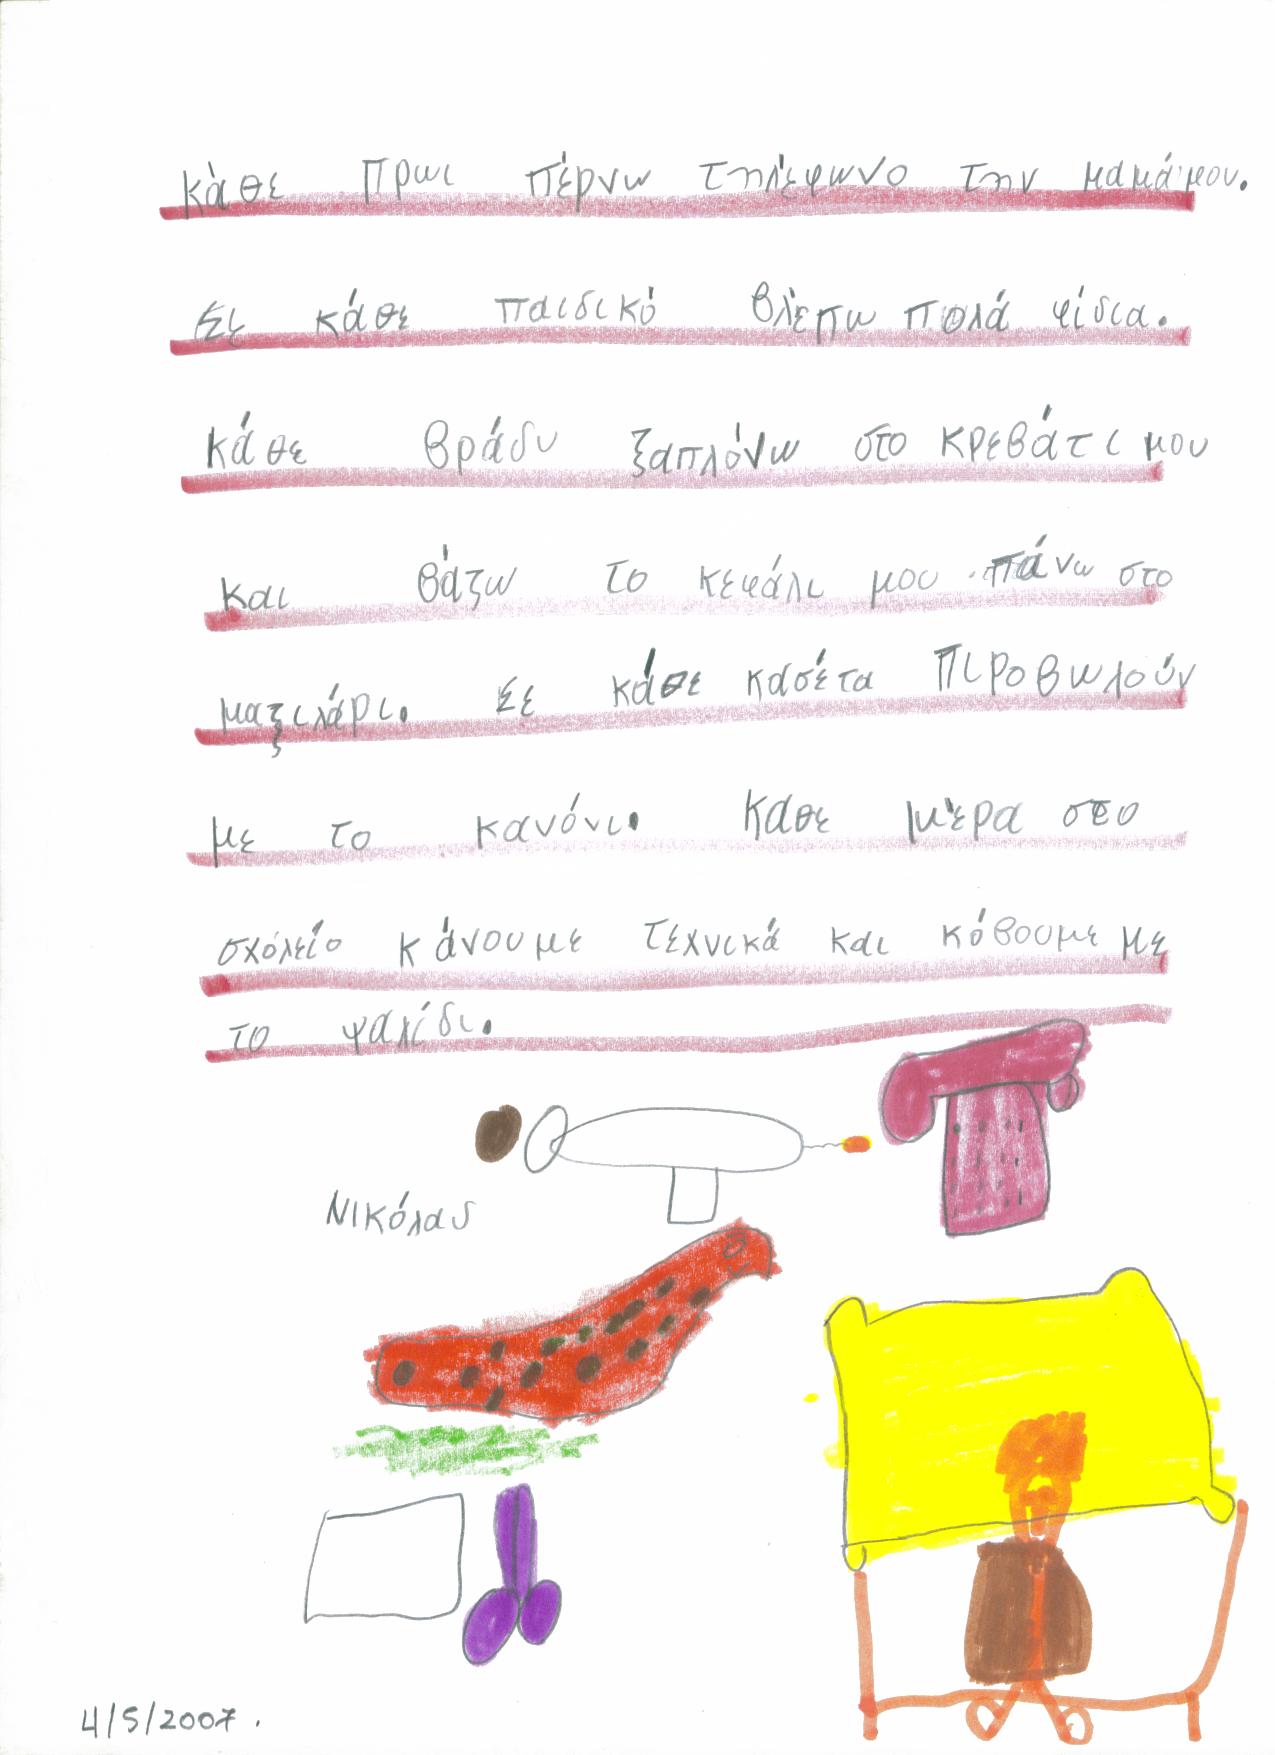 κάθε πρωι πέρνω τηλέφωνο την μαμά μου.
Σε κάθε παιδικό βλέπω πολά φίδια.
κάθε βράδυ ξαπλόνω στο κρεβάτι μου
και βάζω το κεφάλι μου πάνω στο
μαξιλάρι. Σε κάθε κασέτα πιροβωλούν
με το κανόνι. Κάθε μέρα στο
σχόλείο κάνουμε τεχνικά και κόβουμε με
το ψαλίδι.
Νικόλας
4/5/2007.